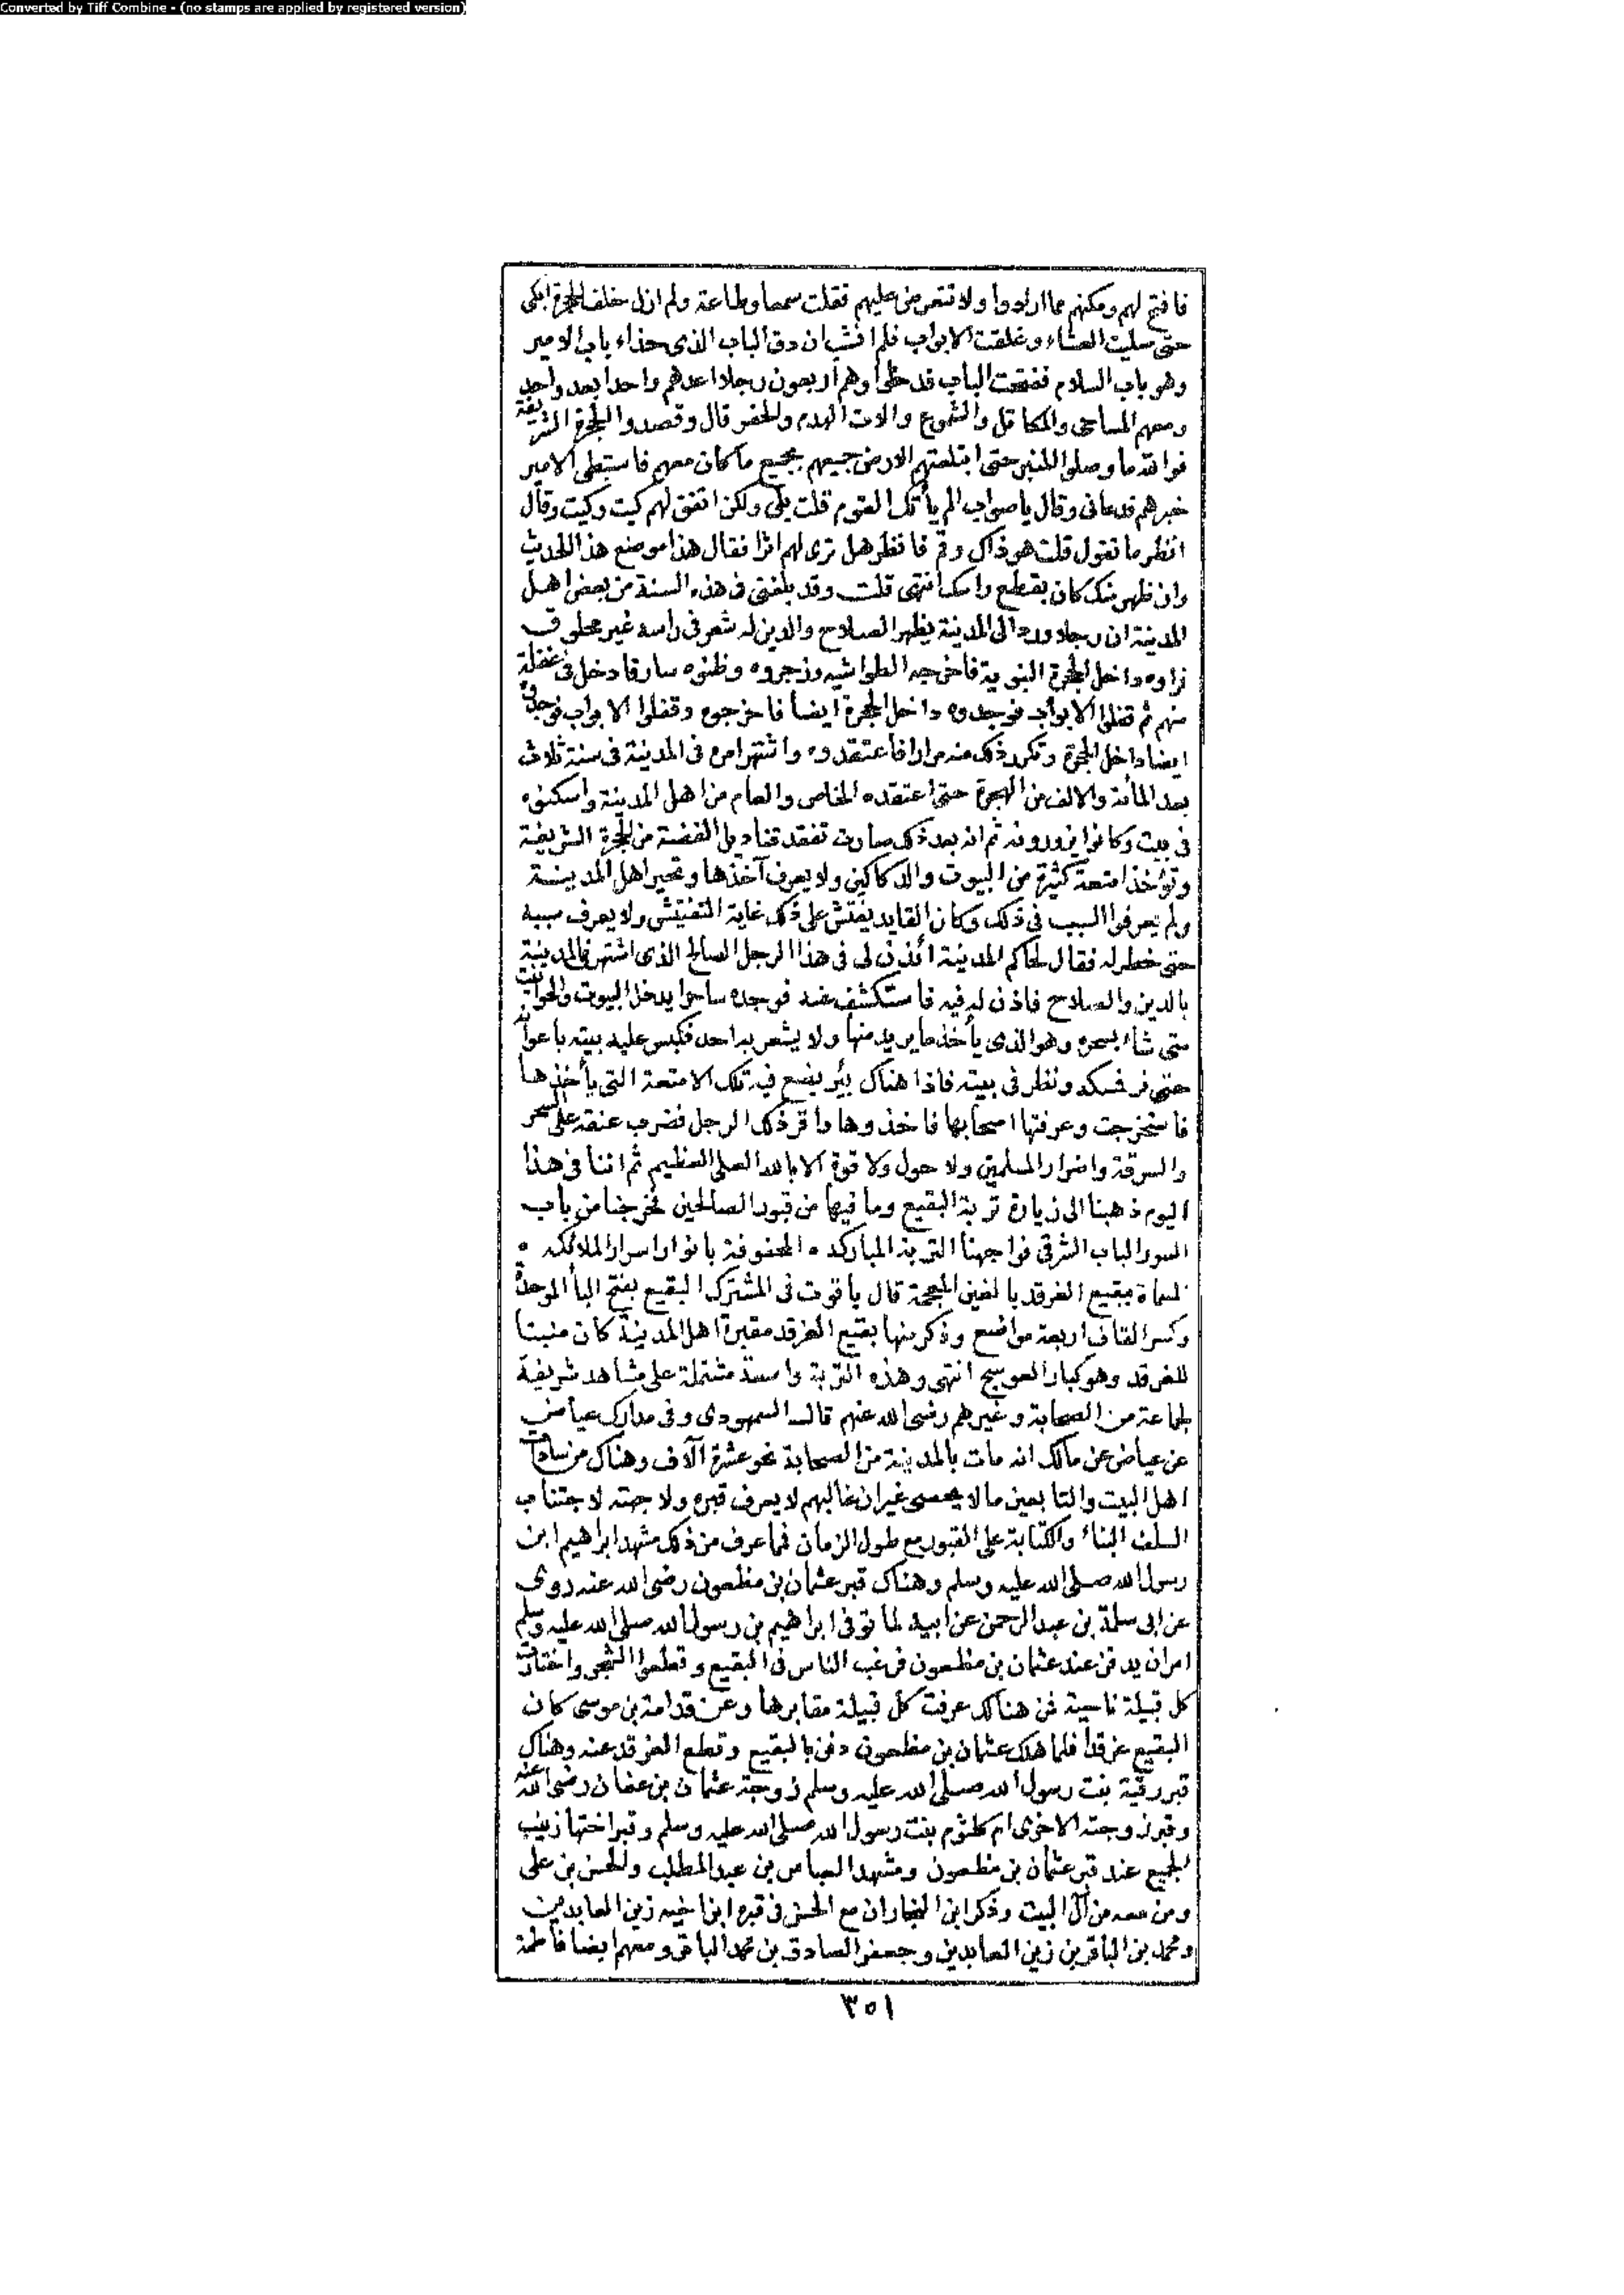 Converted by Tiff Combine - (no stamps are applied by registered version)
فافتح لهم ومكنهم مما ارادوا ولا تتعرض عليهم فقلت سمعا وطاعة ولم ازل خلف الحجرة ابكى
حتى صليت العشاء وغلقت الابواب فلم انشب ان دق الباب الذى حذاء باب الامير
وهو باب السلام ففتحت الباب فدخلوا وهم اربعون رجلا اعدهم واحدا بعد واحد
ومعهم المساحى والمكاتل والشموع والات الهدم والحفر قال وقصدوا الحجرة الشريفة
فوالله ما وصلوا المنبر حتى ابتلعتهم الارض جميعهم بجميع ما كان معهم فاستبطى الامير
خبرهم فدعانى وقال يا صواب الم يأتك القوم قلت بلى ولكن اتفق لهم كيت وكيت وقال
انظر ما تقول قلت هو ذاك وقم فانظر هل ترى لهم اثرا فقال هذا موضع هذا الحديث
وان ظهر منك كان بقطع راسك انتهى قلت وقد بلغنى فى هذه السنة من بعض اهل
المدينة ان رجلا ورد الى المدينة يظهر الصلاح والدين له شعر فى راسه غير محلوق
نراوه داخل الحجرة النبوية فاخرجه الطواشيه وزجروه وظنوه سارقا دخل فى غفلة
منهم ثم قفلوا الابواب فوجدوه داخل الحجرة ايضا فاخرجوه وقفلوا الابواب فوجدوه
ايضا داخل الحجرة وتكرر ذلك منه مرارا فاعتقدوه واشتهر امره فى المدينة فى سنة ثلاث
بعد المأئة والالف من الهجرة حتى اعتقده الخاص والعام من اهل المدينة واسكنوه
فى بيت وكانوا يزورونه ثم انه بعد ذلك صارت تفقد قناديل الفضة من الحجرة الشريفة
وتؤخذ امتعة كثيرة من البيوت والدكاكين ولا يعرف آخذها وتحير اهل المدينة
ولم يعرفوا السبب فى ذلك وكان القايد يفتش على ذلك غاية التفتيش ولا يعرف سببه
حتى خطر له فقال لحاكم المدينة أئذن لى فى هذا الرجل الصالح الذى اشتهر فى المدينة
بالدين والصلاح فاذن له فيه فاستكشف عنه فوجده ساحرا يدخل البيوت والحوانيت
متى شاء بسحره وهو الذى يأخذ ما يريد منها ولا يشعر به احد فكبس عليه بيته باعوانه
حتى مسكه ونظر فى بيته فاذا هناك بئر يضع فيه تلك الامتعة التى يأخذها
فاستخرجت وعرفتها اصحابها فاخذوها واقر ذلك الرجل فضرب عنقه على السحر
والسرقة واضرار المسلمين ولا حول ولا قوة الا بالله العلى العظيم ثم اننا فى هذا
اليوم ذهبنا الى زيارة تربة البقيع وما فيها من قبور الصالحين فخرجنا من باب
السور الباب الشرقى فواجهنا التربة المباركه • المحفوفة بانوار اسرار الملائكه •
المسماة ببقيع الغرقد بالغين المعجمة قال ياقوت فى المشترك البقيع بفتح البأ الموحدة
وكسر القاف اربعة مواضع وذكر منها بقيع الغرقد مقبرة اهل المدينة كان منبتا
للغرقد وهو كبار العوسج انتهى وهذه التربة واسعة مشتملة على مشاهد شريفة
لجماعة من الصحابة وغيرهم رضى الله عنهم قال السمهودى وفى مدارك عياض
عن عياض عن مالك انه مات بالمدينة من الصحابة نحو عشرة آلاف وهناك من سادات
اهل البيت والتابعين ما لا يحصى غير ان غالبهم لا يعرف قبره ولا جهته لاجتناب
السلف البناء والكتابة على القبور مع طول الزمان فما عرف من ذلك مشهد ابراهيم ابن
رسول الله صلى الله عليه وسلم وهناك قبر عثمان بن مظعون رضى الله عنه روى
عن ابى سلمة بن عبد الرحمن عن ابيه لما توفى ابراهيم بن رسول الله صلى الله عليه وسلم
امر ان يدفن عند عثمان بن مظعون فرغب الناس فى البقيع وقطعوا الشجر واختارت
كل قبيلة ناحية فمن هنالك عرفت كل قبيلة مقابرها وعن قدامة بن موسى كان
البقيع غرقدا فلما هلك عثمان بن مظعون دفن بالبقيع وقطع الغرقد عنه وهناك
قبر رقية بنت رسول الله صلى الله عليه وسلم زوجة عثمان بن عفان رضى الله عنه
وقبر زوجته الاخرى ام كلثوم بنت رسول الله صلى الله عليه وسلم وقبر اختها زينب
الجميع عند قبر عثمان بن مظعون ومشهد العباس بن عبد المطلب والحسن بن على
ومن معه من آل البيت وذكر ابن النجار ان مع الحسن فى قبره ابن اخيه زين العابدين
ومحمد بن الباقر بن زين العابدين وجعفر الصادق بن محمد الباقر ومعهم ايضا فاطمة
٣٥١